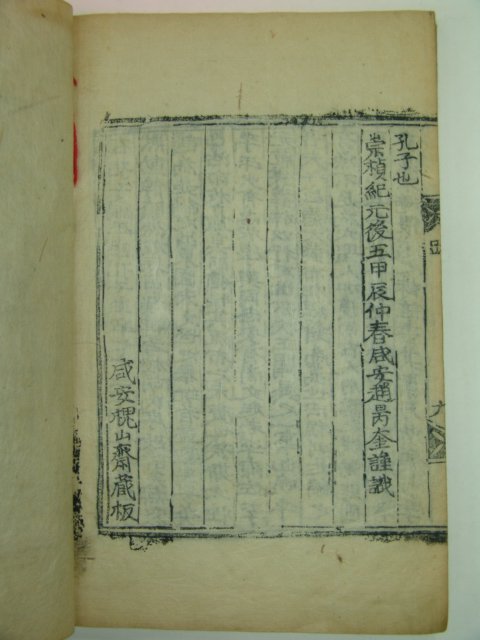 孔子也
崇禎紀元後五甲辰仲春咸安趙昺奎謹識
咸安槐山齋藏板
跋
六